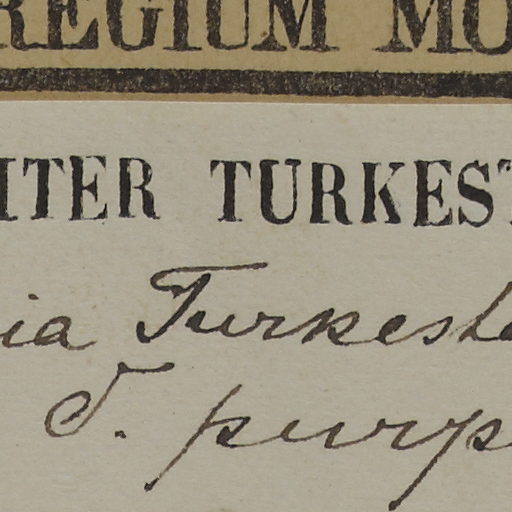 REGIUM MO
ITER TURKEST
ia Turkesta
δ. purp